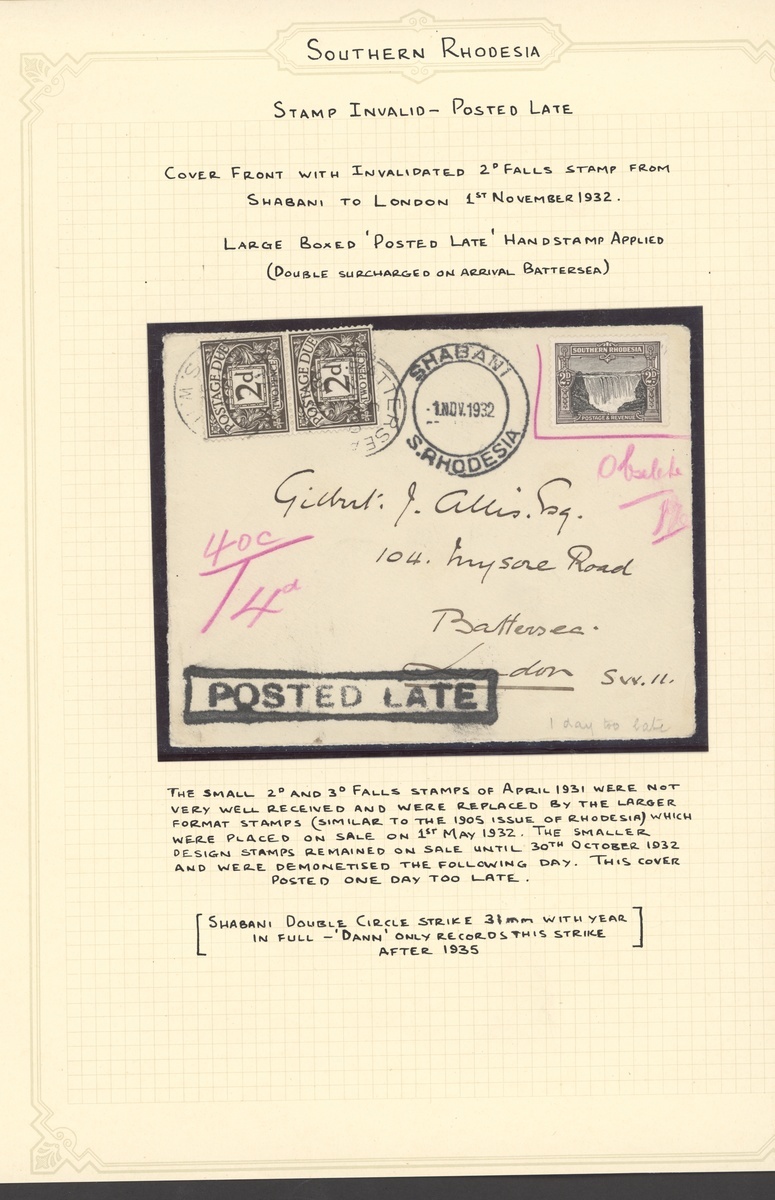 SOUTHERN RHODESIA
STAMP INVALID - POSTED LATE
COVER FRONT WITH INVALIDATED 2D FALLS STAMP FROM
SHABANI TO LONDON 1ST NOVEMBER 1932.
LARGE BOXED 'POSTED LATE' HANDSTAMP APPLIED
(DOUBLE SURCHARGED ON ARRIVAL BATTERSEA)
POSTAGE DUE
2d
TWO PENCE
POSTAGE DUE
2d
TWO PENCE
SHABANI
-1.NOV.1932
S.RHODESIA
SOUTHERN RHODESIA
2D 2D
POSTAGE & REVENUE
Obsolete
Gilbert. J. Allis. Esq.
40c
104. Mysore Road
4d
Battersea.
London S.W.11.
POSTED LATE
1 day too late
THE SMALL 2D AND 3D FALLS STAMPS OF APRIL 1931 WERE NOT
VERY WELL RECEIVED AND WERE REPLACED BY THE LARGER
FORMAT STAMPS (SIMILAR TO THE 1905 ISSUE OF RHODESIA) WHICH
WERE PLACED ON SALE ON 1ST MAY 1932. THE SMALLER
DESIGN STAMPS REMAINED ON SALE UNTIL 30TH OCTOBER 1932
AND WERE DEMONETISED THE FOLLOWING DAY. THIS COVER
POSTED ONE DAY TOO LATE.
[SHABANI DOUBLE CIRCLE STRIKE 31mm WITH YEAR
IN FULL - 'DANN' ONLY RECORDS THIS STRIKE
AFTER 1935]